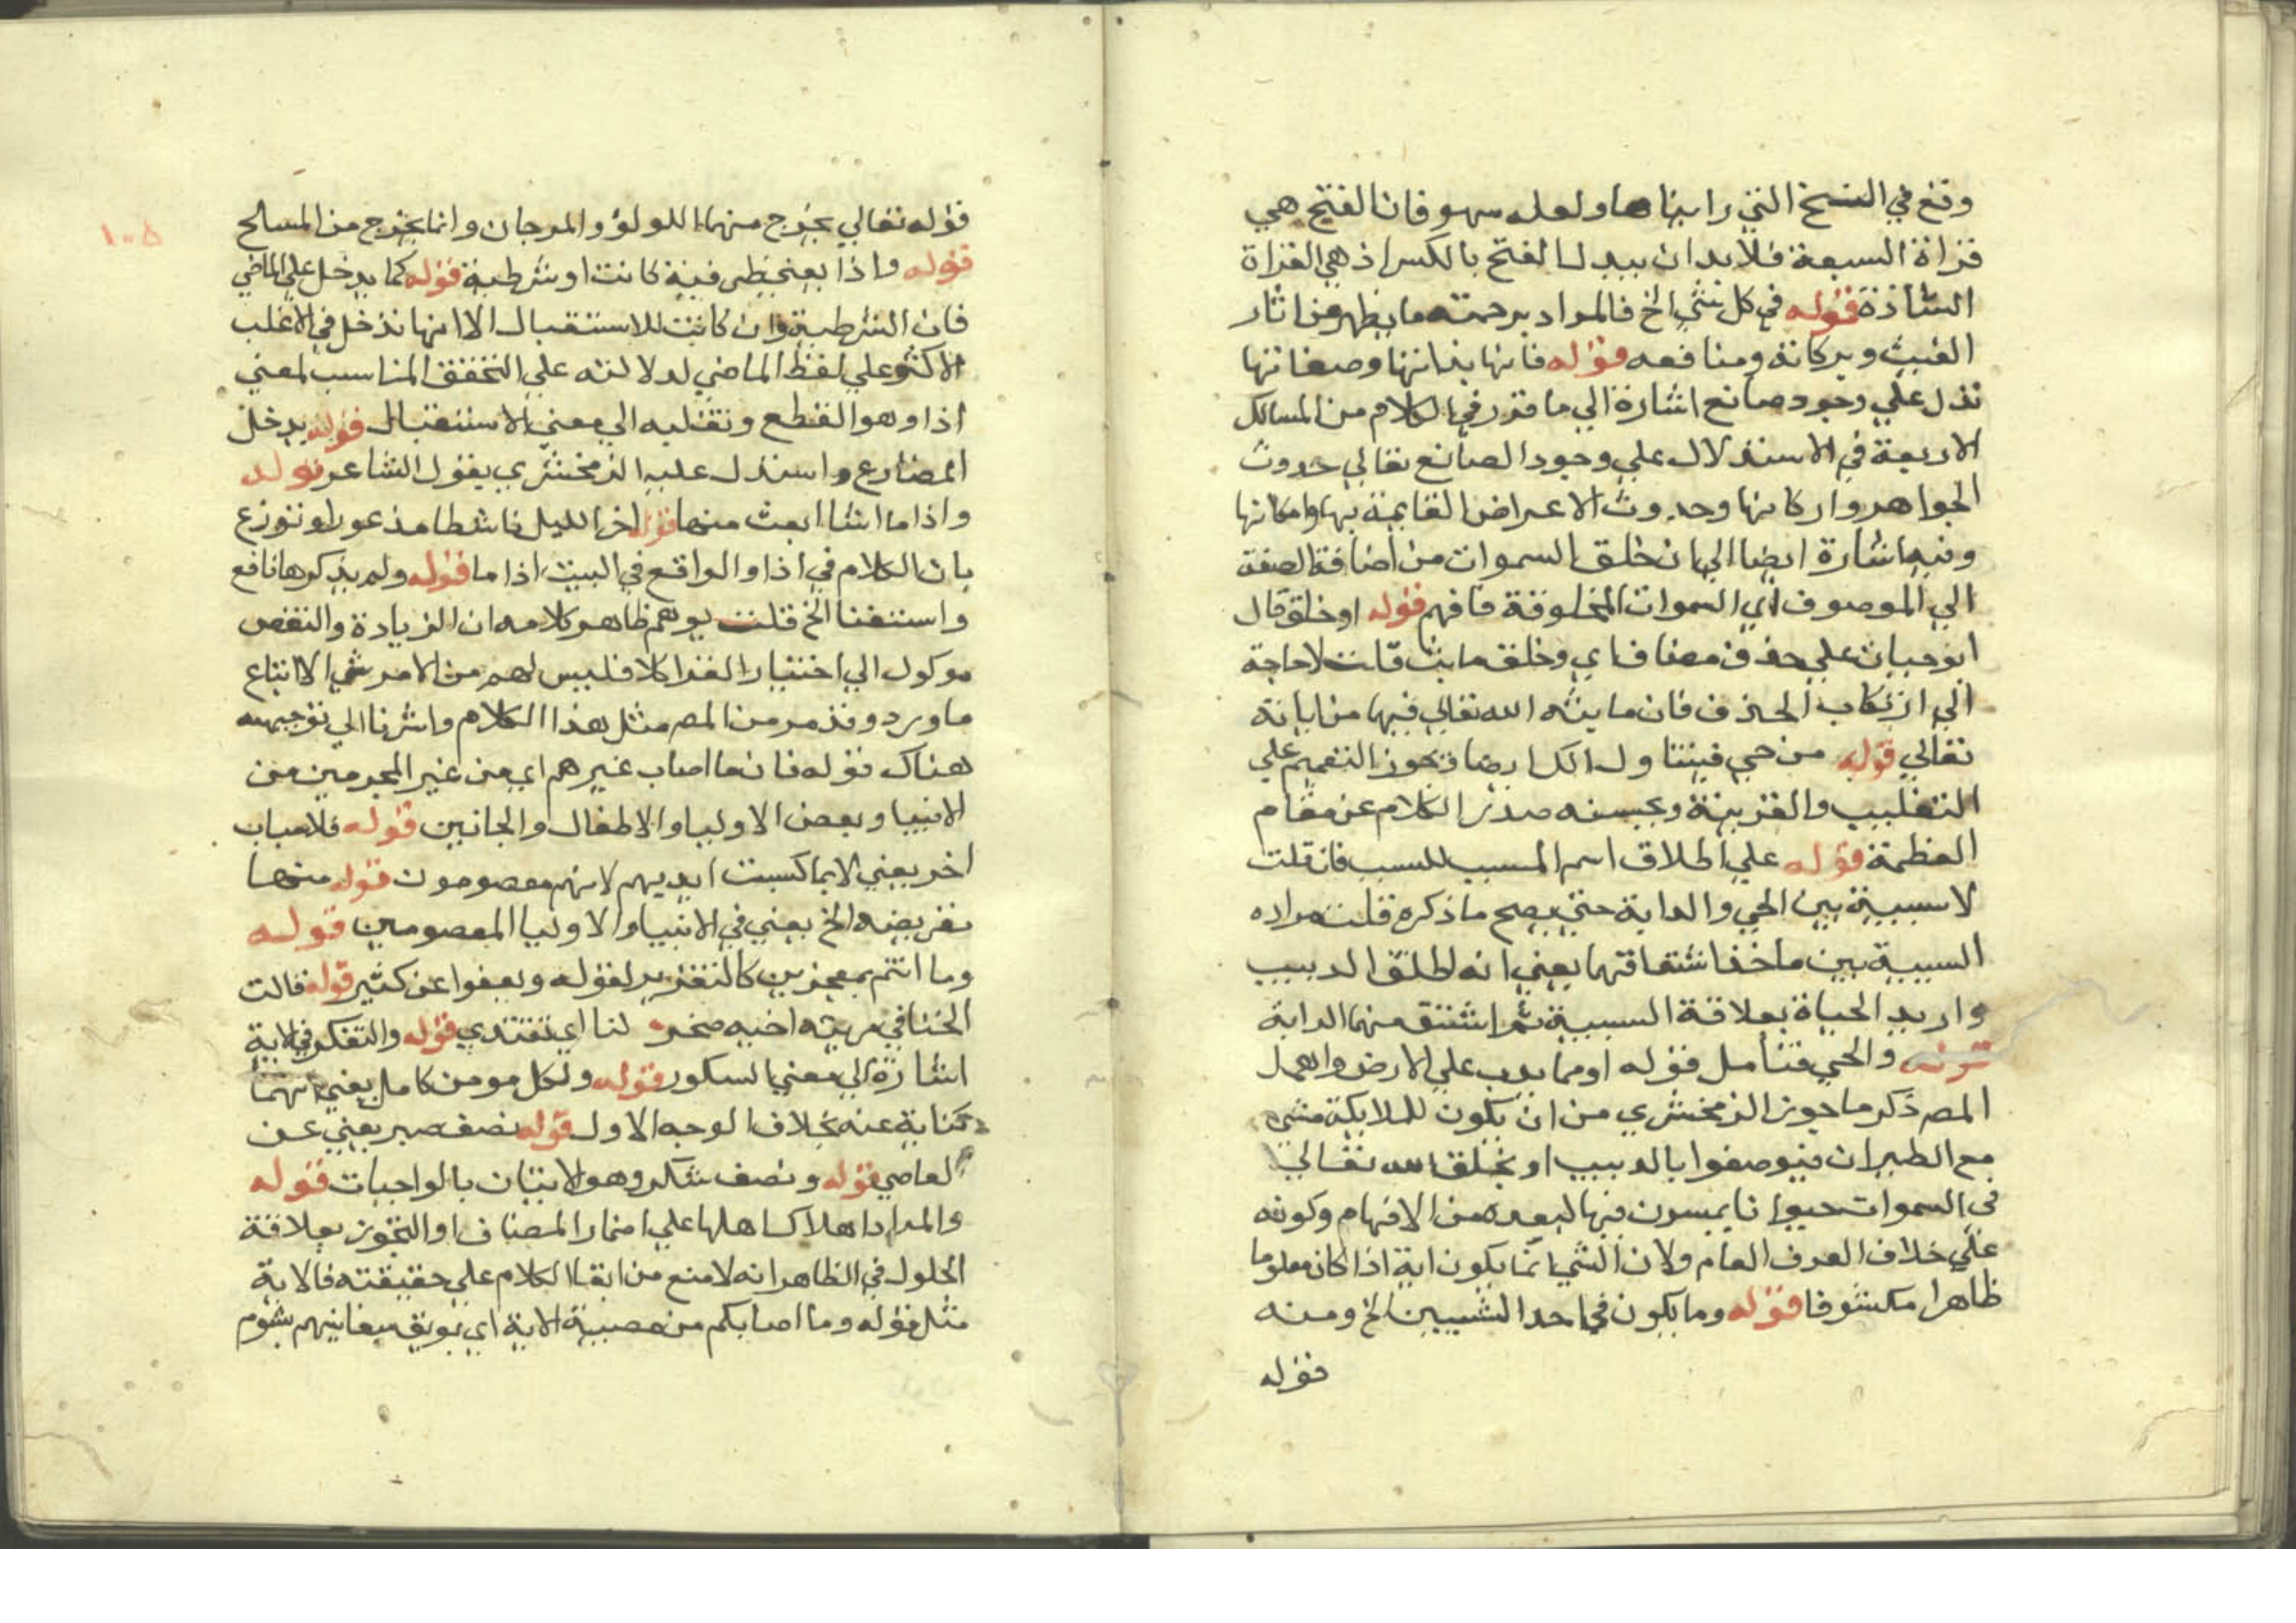 وقع في النسخ التي رايناها ولعله سهو فان الفتح هي
قراة السبعة فلا بد ان يبدل الفتح بالكسر اذ هي القراة
الشاذة قوله في كل شي الخ فالمراد برحمته ما يظهر من اثار
الغيث وبركاته ومنافعه قوله فانها بذاتها وصفاتها
تدل علي وجود صانع اشارة الي ما قرر في الكلام من المسالك
الاربعة في الاستدلال علي وجود الصانع تعالي حدوث
الجواهر واركانها وحدوث الاعراض القايمة بها وامكانها
وفيه اشارة ايضا الي ان خلق السموات من اضافة الصفة
الي الموصوف اي السموات المخلوقة فافهم قوله او خلق قال
ابو حيان علي حذف مضاف اي وخلق ما بث قلت لا حاجة
الي ارتكاب الحذف فان ما بثه الله تعالي فيها من اياته
تعالي قوله من حي فيتناول الكل ايضا فيجوز التعميم علي
التغليب والقرينة وبحسنه صدر الكلام عن مقام
العظمة قوله علي اطلاق اسم المسبب للسبب فان قلت
لا سببية بين الحي والدابة حتي يصح ما ذكره قلت مراده
السببية بين ماخذ اشتقاقهما يعني انه اطلق الدبيب
واريد الحياة بعلاقة السببية ثم اشتق منهما الدابة
والحي فتامل قوله او مما يدب علي الارض واهمل
المص ذكر ما جوز الزمخشري من ان يكون للملايكة مشي
مع الطيران فيوصفوا بالدبيب او يخلق الله تعالي
في السموات حيوانا يمسون فيها لبعده من الافهام وكونه
علي خلاف العرف العام ولان الشي انما يكون اية اذا كان معلوما
ظاهرا مكشوفا قوله وما يكون في احد الشيين الخ ومنه
قوله
١٠٥
قوله تعالي يخرج منهما اللولؤ والمرجان وانما يخرج من المسالح
قوله واذا كانت او شرطية قوله كما يدخل علي الماضي
فان الشرطية وان كانت للاستقبال الا انها تدخل في الاغلب
الاكثر علي لفظ الماضي لدلالته علي التحقق المناسب لمعني
اذا وهو القطع ونقلبه الي معني الاستقبال قوله يدخل
المضارع واستدل عليه الزمخشري بقول الشاعر قوله
واذا ما اشا ابعث منها قوله اخر الليل ناشطا مذعورا ونوزع
بان الكلام في اذا والواقع في البيت اذا ما قوله ولم يذكرها نافع
واستغنا الخ قلت يوهم ظاهر كلامه ان الزيادة والنقص
موكول الي اختيار القرا كلا فليس لهم من الامر شي الا اتباع
ما ورد وقد مر من المص مثل هذا الكلام واشرنا الي توجيهه
هناك قوله فان ما اصاب غيرهم اي من غير المجرمين من
الانبيا وبعض الاوليا والاطفال والمجانين قوله فلاسباب
اخر يعني لا بما كسبت ايديهم لانهم معصومون قوله منها
تعريضه الخ يعني في الانبيا والاوليا المعصومين قوله
وما انتم بمعجزين كالتقرير لقوله ويعفوا عن كثير قوله قالت
الخنسا في مرثية اخيه صخر لنا اي تقتدي قوله والتفكر في الاية
اشارة الي معني السكور قوله ولكل مومن كامل يعني انهما
كناية عنه بخلاف الوجه الاول قوله نصف صبر يعني عن
المعاصي قوله ونصف شكر وهو الاتيان بالواجبات قوله
والمراد اهلاك اهلها علي اضمار المضاف او التجوز بعلاقة
الحلول في الظاهر انه لا منع من ابقا الكلام علي حقيقته فالاية
مثل قوله وما اصابكم من مصيبة الاية اي يوبق سفاينهم بشوم